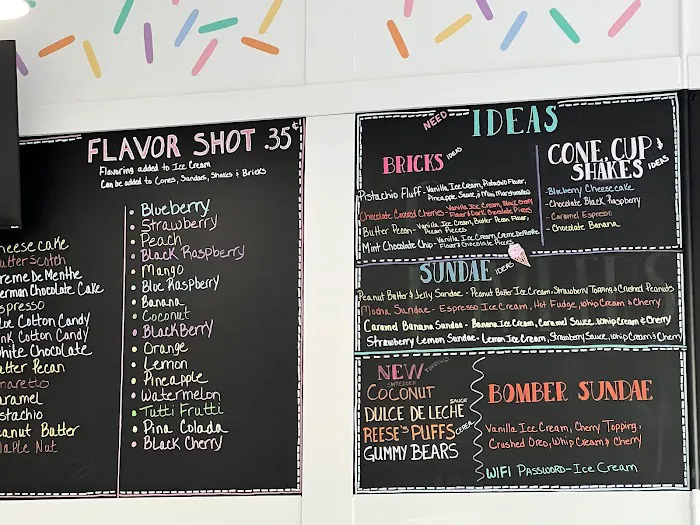 FLAVOR SHOT .35¢
Flavoring added to Ice Cream
Can be added to Cones, Sundaes, Shakes & Bricks
cheesecake
utterscotch
reme De Menthe
erman Chocolate Cake
spresso
lue Cotton Candy
nk Cotton Candy
hite Chocolate
utter Pecan
maretto
aramel
stachio
eanut Butter
aple Nut
• Blueberry
• Strawberry
• Peach
• Black Raspberry
• Mango
• Blue Raspberry
• Banana
• Coconut
• BlackBerry
• Orange
• Lemon
• Pineapple
• Watermelon
• Tutti Frutti
• Pina Colada
• Black Cherry
NEED IDEAS
BRICKS IDEAS
Pistachio Fluff - Vanilla Ice Cream, Pistachio Flavor,
Pineapple Sauce, & Mini Marshmallows
Chocolate Covered Cherries - Vanilla Ice Cream, Black Cherry
Flavor & Dark Chocolate Pieces
Butter Pecan - Vanilla Ice Cream, Butter Pecan Flavor,
Pecan Pieces
Mint Chocolate Chip - Vanilla Ice Cream, Creme De Menthe
Flavor & Chocolate Pieces
CONE, CUP &
SHAKES IDEAS
- Blueberry Cheesecake
- Chocolate Black Raspberry
- Caramel Espresso
- Chocolate Banana
SUNDAE IDEAS
Peanut Butter & Jelly Sundae - Peanut Butter Ice Cream, Strawberry Topping & Crushed Peanuts
Mocha Sundae - Espresso Ice Cream, Hot Fudge, Whip Cream & Cherry
Caramel Banana Sundae - Banana Ice Cream, Caramel Sauce, Whip Cream & Cherry
Strawberry Lemon Sundae - Lemon Ice Cream, Strawberry Sauce, Whip Cream & Cherry
NEW TOPPINGS
SHREDDED
COCONUT
DULCE DE LECHE SAUCE
REESE'S PUFFS CEREAL
GUMMY BEARS
BOMBER SUNDAE
Vanilla Ice Cream, Cherry Topping,
Crushed Oreo, Whip Cream & Cherry
WIFI PASSWORD - Ice Cream